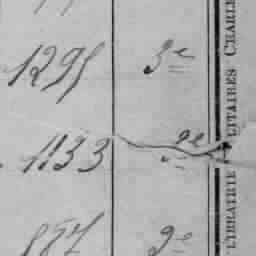 1295 3e
1133 9e
857 9e
LIBRAIRIE MILITAIRES CHARLES